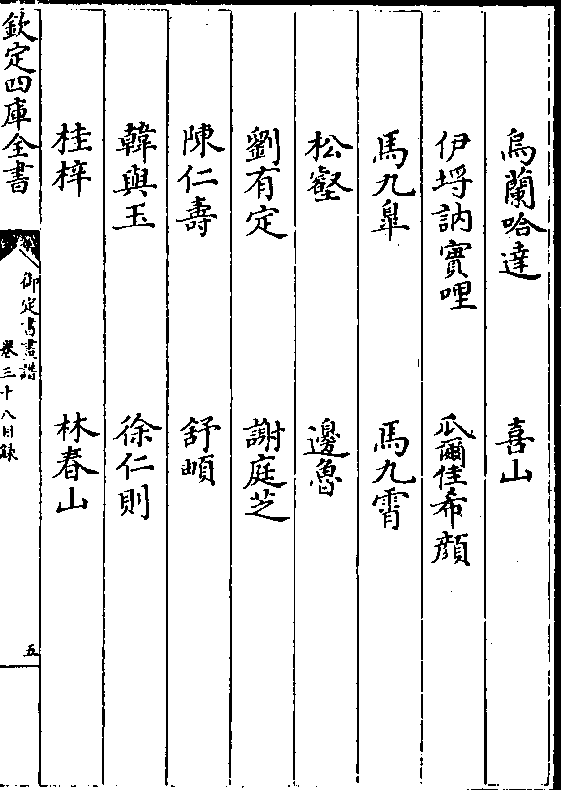 烏蘭哈達　喜山
伊埒訥實哩　瓜爾佳希顔
馬九臯　馬九霄
松壑　邊魯
劉有定　謝庭芝
陳仁壽　舒㟽
韓與玉　徐仁則
桂梓　林春山
欽定四庫全書　御定書畫譜
卷三十八目録　五